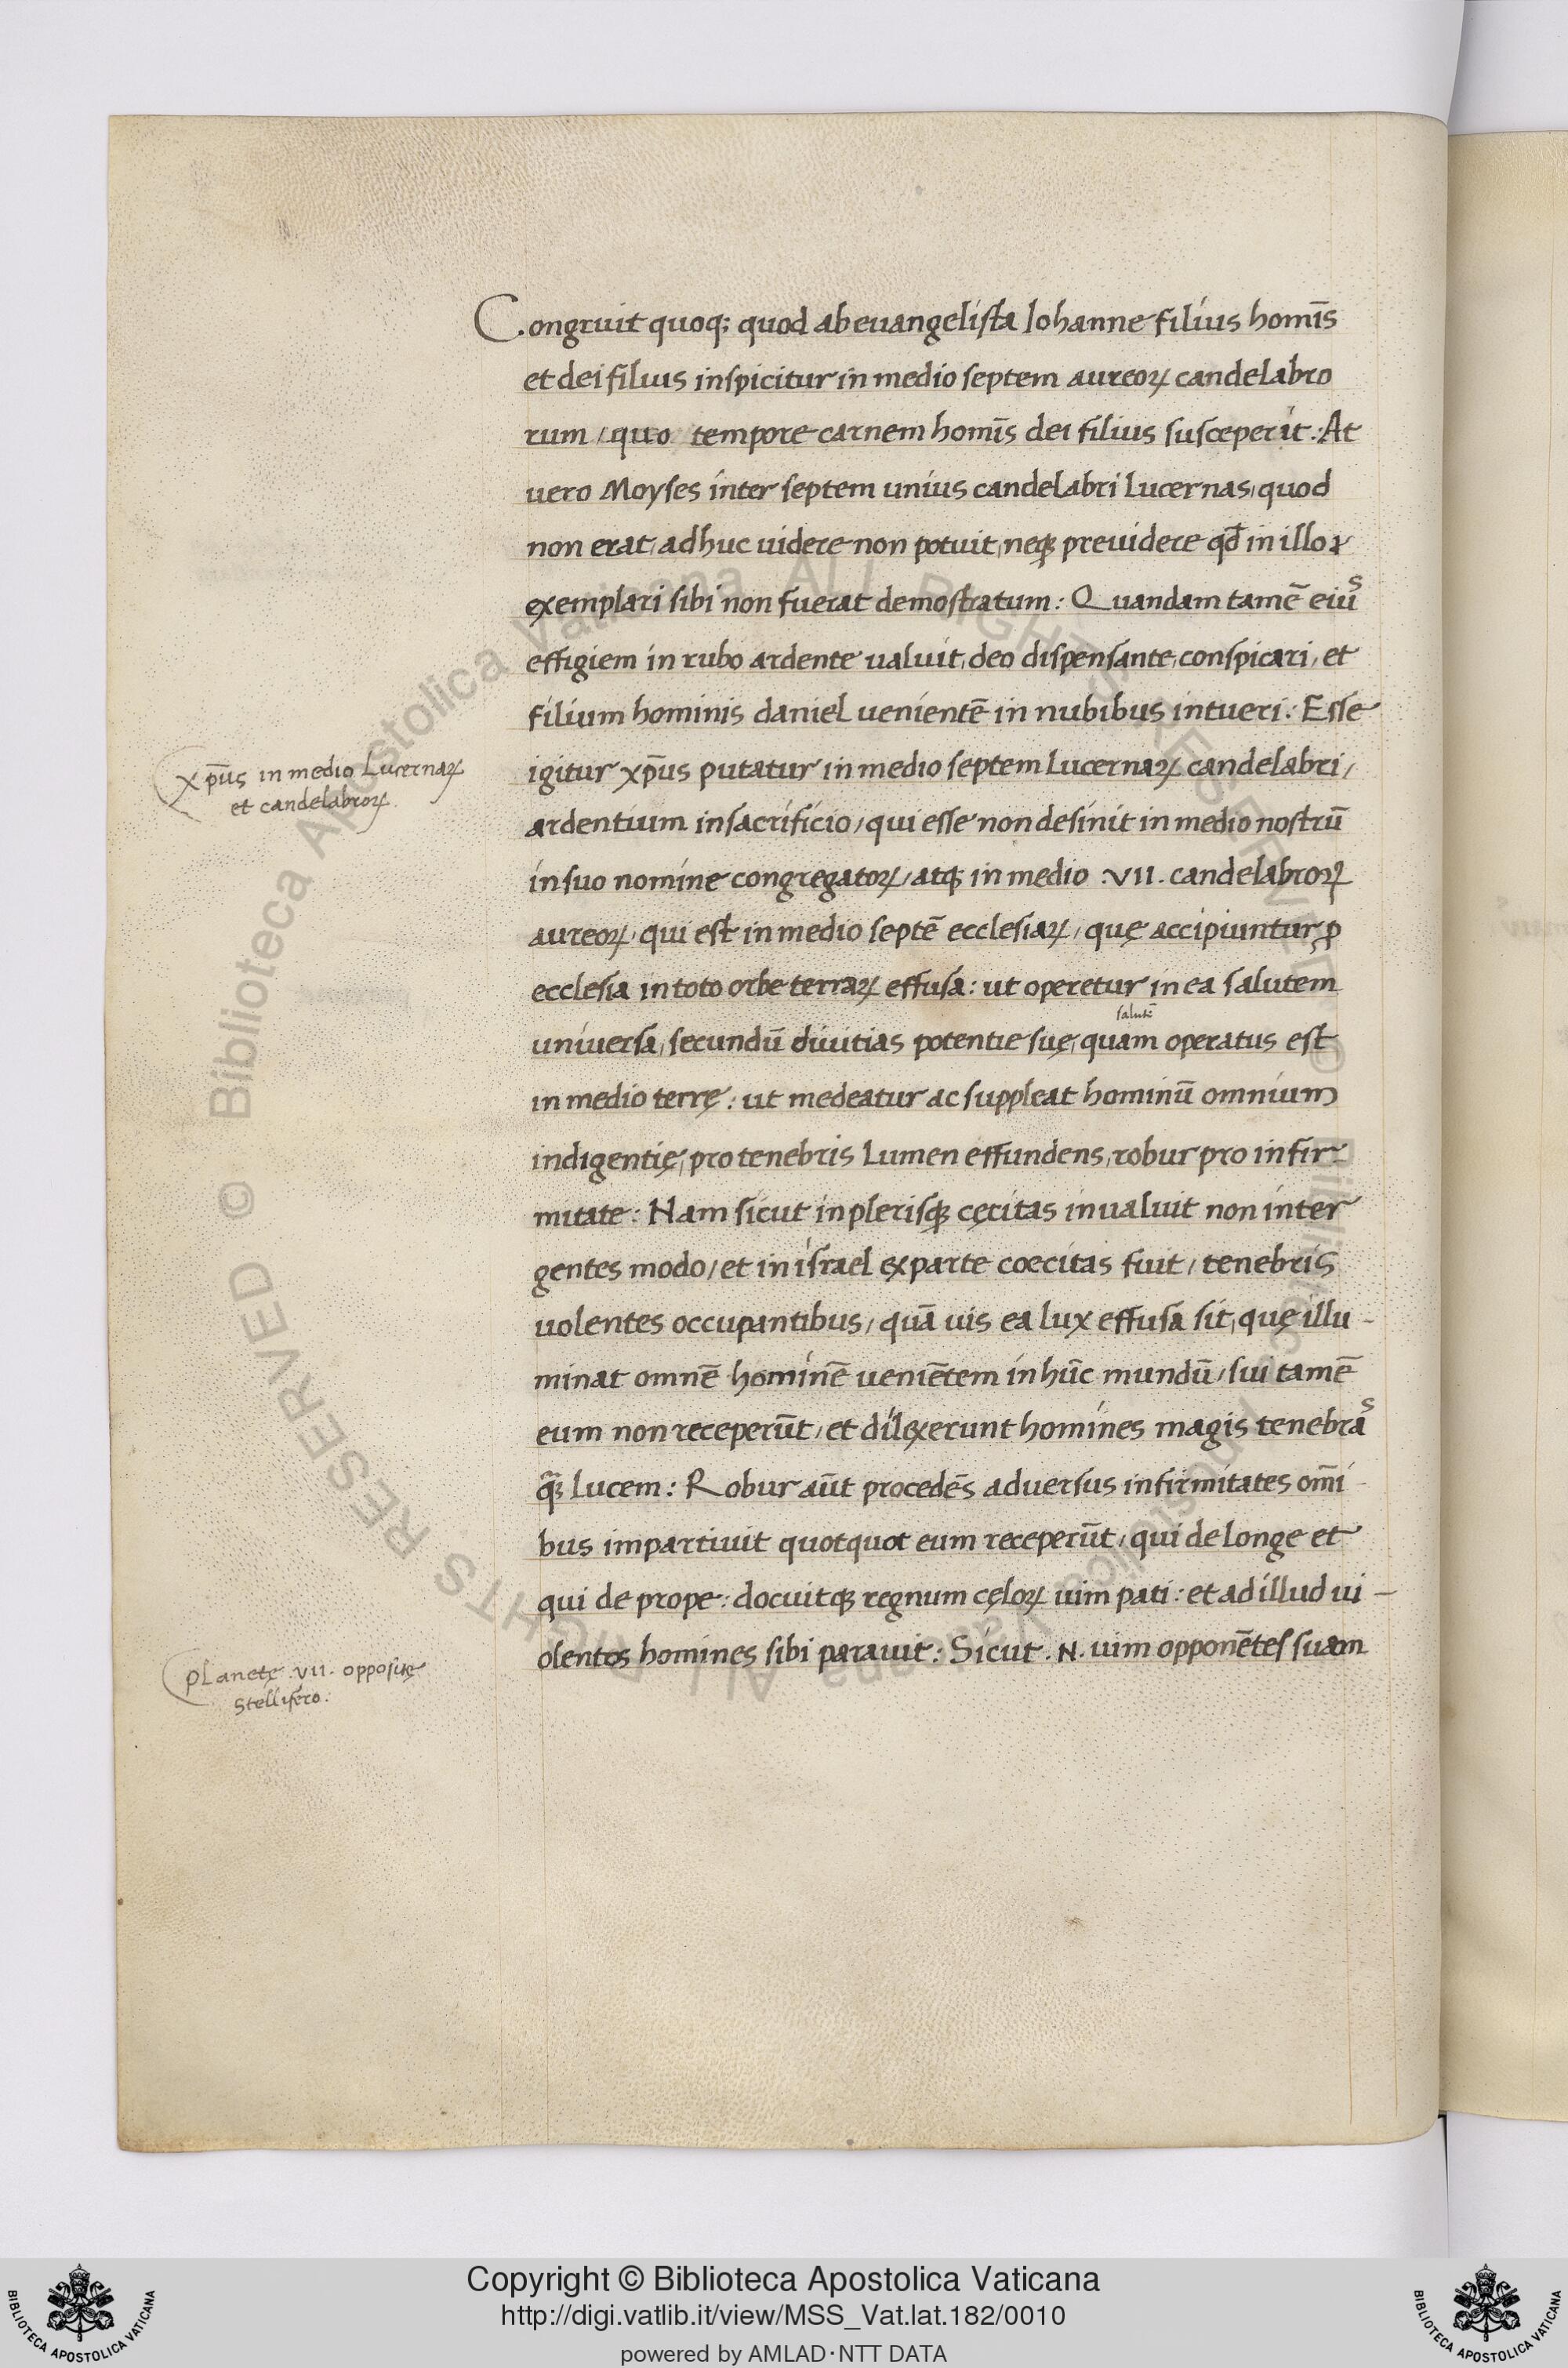 Congruit quoq; quod ab euangelista Iohanne filius homīs
et dei filius inspicitur in medio septem aureoꝝ candelabro
rum / quo tempore carnem homīs dei filius susceperit : At
uero Moyses inter septem unius candelabri Lucernas, quod
non erat, adhuc uidere non potuit, neqꝫ preuidere qđ in illoꝝ
exemplari sibi non fuerat demostratum : Quandam tamē eiuˢ
effigiem in rubo ardente ualuit, deo dispensante, conspicari, et
filium hominis daniel uenientē in nubibus intueri : Esse
xp̄us in medio Lucernaꝝ
et candelabroꝝ.
igitur xp̄us putatur in medio septem Lucernaꝝ candelabri /
ardentium in sacrificio / qui esse non desinit in medio nostrū
in suo nomine congregatoꝝ / atqꝫ in medio .VII. candelabroꝝ
aureoꝝ, qui est in medio septē ecclesiaꝝ, quę accipiuntur ꝓ
ecclesia in toto orbe terraꝝ effusa : ut operetur in ea salutem
salutē
uniuersa, secundū diuitias potentie suę, quam operatus est
in medio terrę : ut medeatur ac suppleat hominū omnium
indigentię, pro tenebris Lumen effundens, robur pro infir-
mitate : Nam sicut in plerisqꝫ cęcitas inualuit non inter
gentes modo / et in israel ex parte coecitas fuit / tenebris
uolentes occupantibus / quā uis ea lux effusa sit, quę illu-
minat omnē hominē ueniētem in hūc mundū / sui tamē
eum non receperūt, et dilexerunt homines magis tenebraˢ
qꝫ̄ lucem : Robur aūt procedēs aduersus infirmitates om̄i
bus impartiuit quotquot eum receperūt, qui de longe et
qui de prope : docuitqꝫ regnum cęloꝝ uim pati : et ad illud ui-
olentos homines sibi parauit : Sicut .N. uim opponētes suam
planetę .VII. oppositę
stellifero :
© Biblioteca Apostolica Vaticana ALL RIGHTS RESERVED © Biblioteca Apostolica Vaticana ALL RIGHTS RESERVED
Copyright © Biblioteca Apostolica Vaticana
http://digi.vatlib.it/view/MSS_Vat.lat.182/0010
powered by AMLAD·NTT DATA
BIBLIOTECA APOSTOLICA VATICANA
BIBLIOTECA APOSTOLICA VATICANA